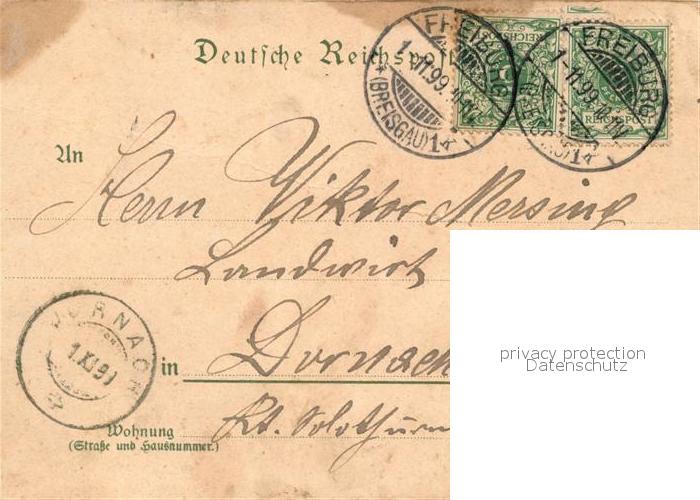 Deutsche Reichspost
FREIBURG
1-11.99.
(BREISGAU)
1*
REICHSPOST
FREIBURG
1-11.99.
1*
REICHSPOST
An
Herrn Viktor Mersing
Landwirt
DORNACH
1.XI.99
in Dornach
Kt. Solothurn
Wohnung
(Straße und Hausnummer.)
privacy protection
Datenschutz